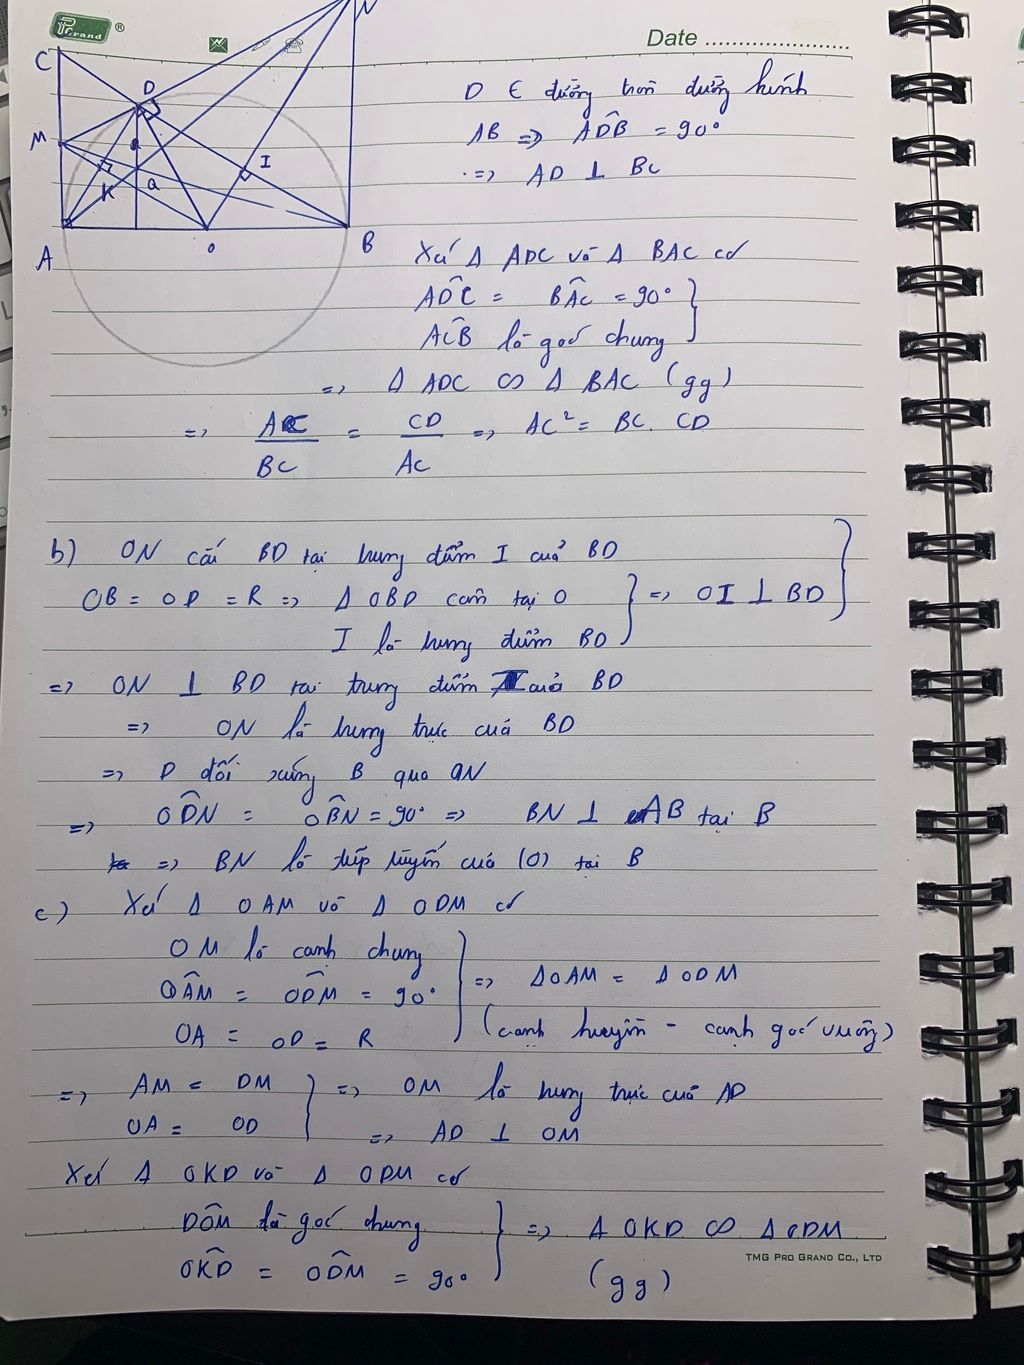 Grand ®
Date ........................
N
C
D
M
I
K
Q
A
O
B
D ∈ đường tròn đường kính
AB => ADB̂ = 90°
=> AD ⊥ BC
Xét Δ ADC và Δ BAC có
ADĈ = BAĈ = 90°
ACB̂ là góc chung
=> Δ ADC ∽ Δ BAC (gg)
=> AC/BC = CD/AC => AC² = BC. CD
b) ON cắt BD tại trung điểm I của BD
OB = OD = R => Δ OBD cân tại O
I là trung điểm BD
=> OI ⊥ BD
=> ON ⊥ BD tại trung điểm I của BD
=> ON là trung trực của BD
=> D đối xứng B qua ON
=> ODN̂ = OBN̂ = 90° => BN ⊥ AB tại B
=> BN là tiếp tuyến của (O) tại B
c) Xét Δ OAM và Δ ODM có
OM là cạnh chung
OAM̂ = ODM̂ = 90°
OA = OD = R
=> ΔOAM = ΔODM
(cạnh huyền - cạnh góc vuông)
=> AM = DM => OM là trung trực của AD
OA = OD => AD ⊥ OM
Xét Δ OKD và Δ ODM có
DOM̂ là góc chung
OKD̂ = ODM̂ = 90°
=> Δ OKD ∽ ΔODM
(gg)
TMG PRO GRAND CO., LTD